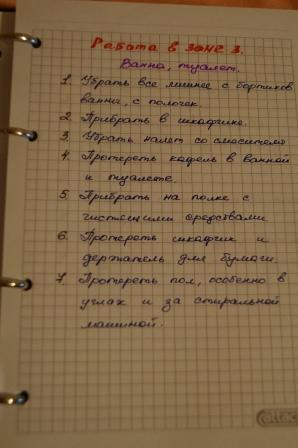 Работа в зоне 3.
Ванна, туалет.
1. Убрать все лишнее с бортиков
ванны, с полочек.
2. Прибрать в шкафчике.
3. Убрать налет со смесителей
4. Протереть кафель в ванной
и туалете.
5. Прибрать на полке с
чистящими средствами
6. Протереть шкафчик и
держатель для бумаги.
7. Протереть пол, особенно в
углах и за стиральной
машиной.
attac